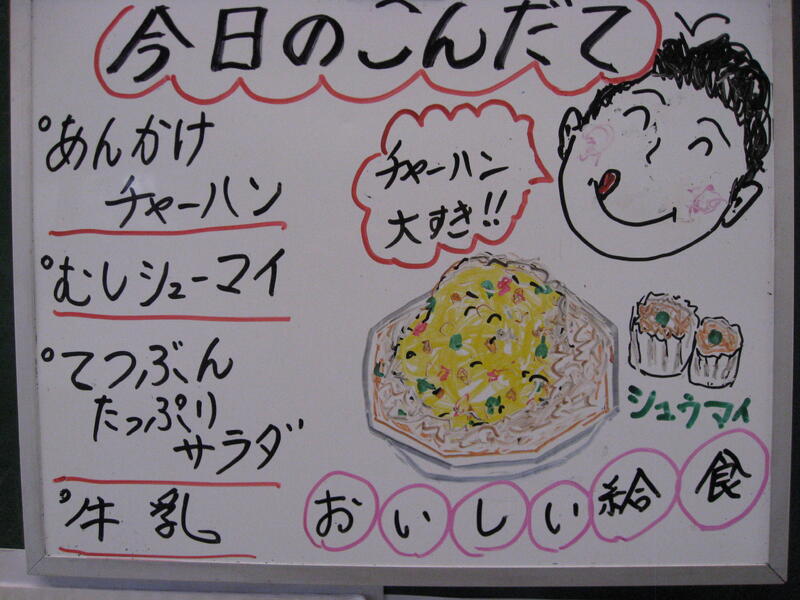 今日のこんだて
°あんかけ
チャーハン
°むしシューマイ
°てつぶん
たっぷり
サラダ
°牛乳
チャーハン
大すき!!
シュウマイ
おいしい給食